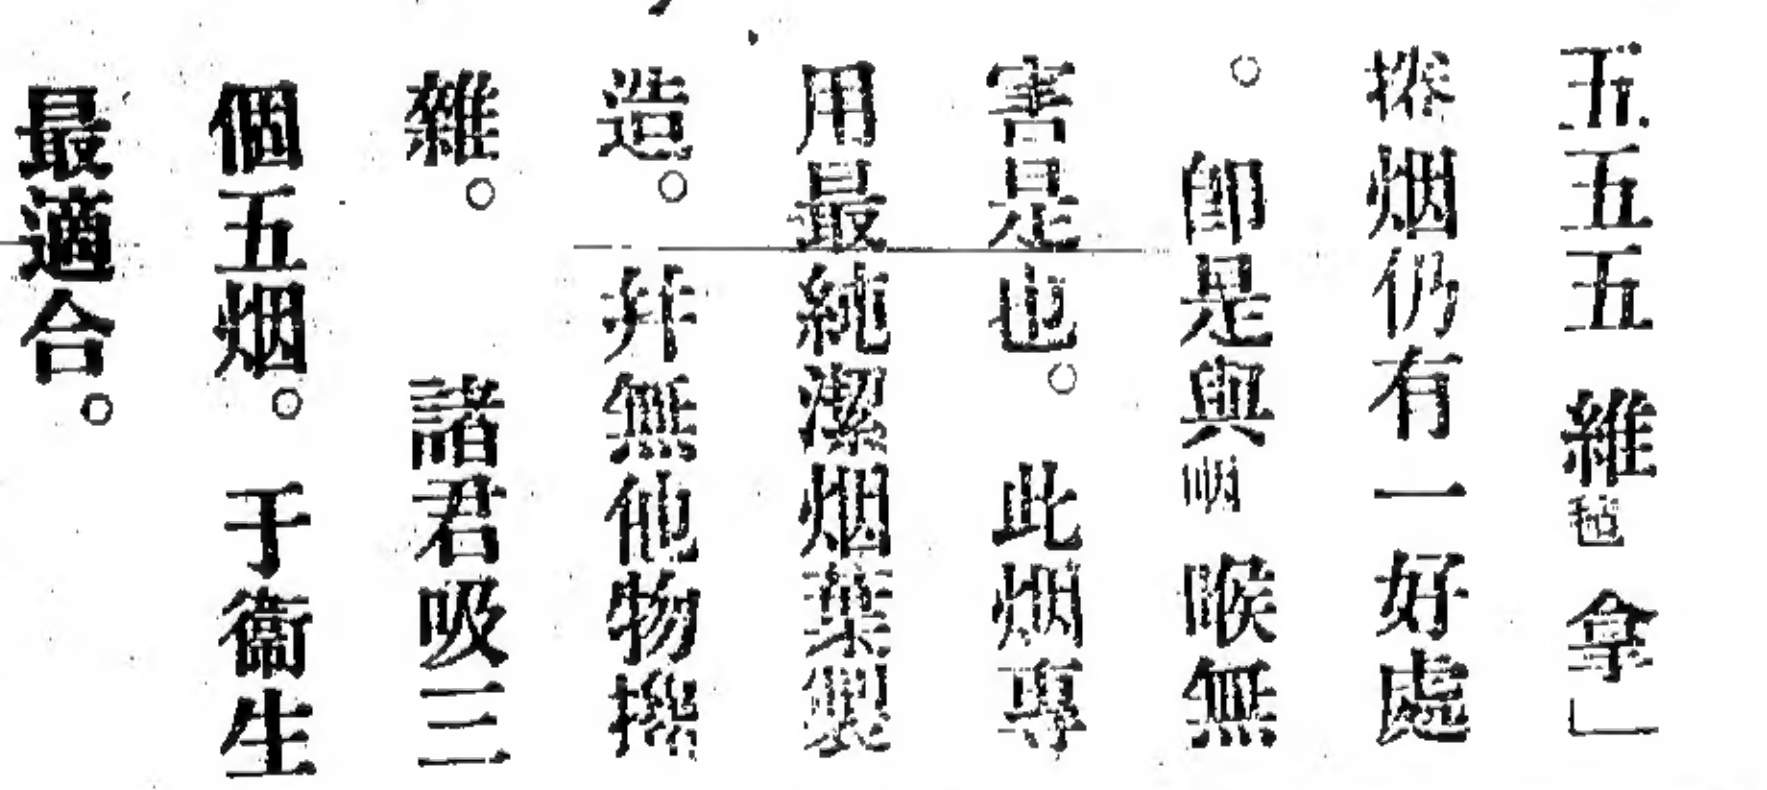 五五五 維 拿」
捲烟仍有一好處
。卽是與 喉無
害是也。此烟專
用最純潔烟葉製
造。并無他物攙
雜。 諸君吸三
個五烟。于衞生
最適合。